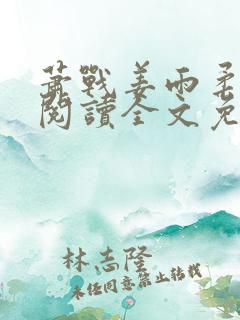 萧戰姜雨柔
閱讀全文免
林志隆
未經同意禁止轉載